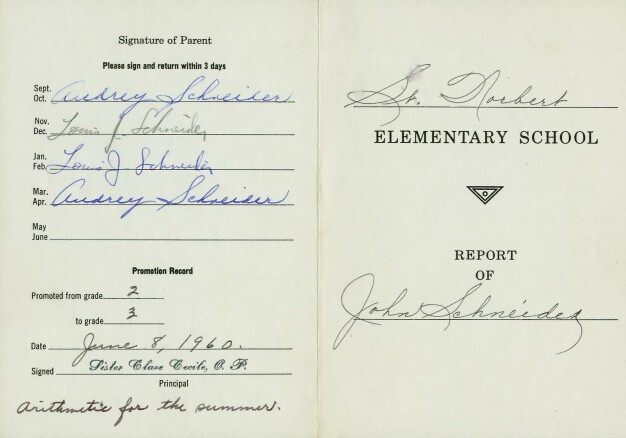 Signature of Parent
Please sign and return within 3 days
Sept.
Oct. Audrey Schneider
Nov.
Dec. Louis J. Schneider
Jan.
Feb. Louis J Schneider
Mar.
Apr. Audrey Schneider
May
June
Promotion Record
Promoted from grade 2
to grade 3
Date June 8, 1960.
Signed Sister Clare Cecile, O. P.
Principal
arithmetic for the summer.
St. Norbert
ELEMENTARY SCHOOL
REPORT
OF
John Schneider